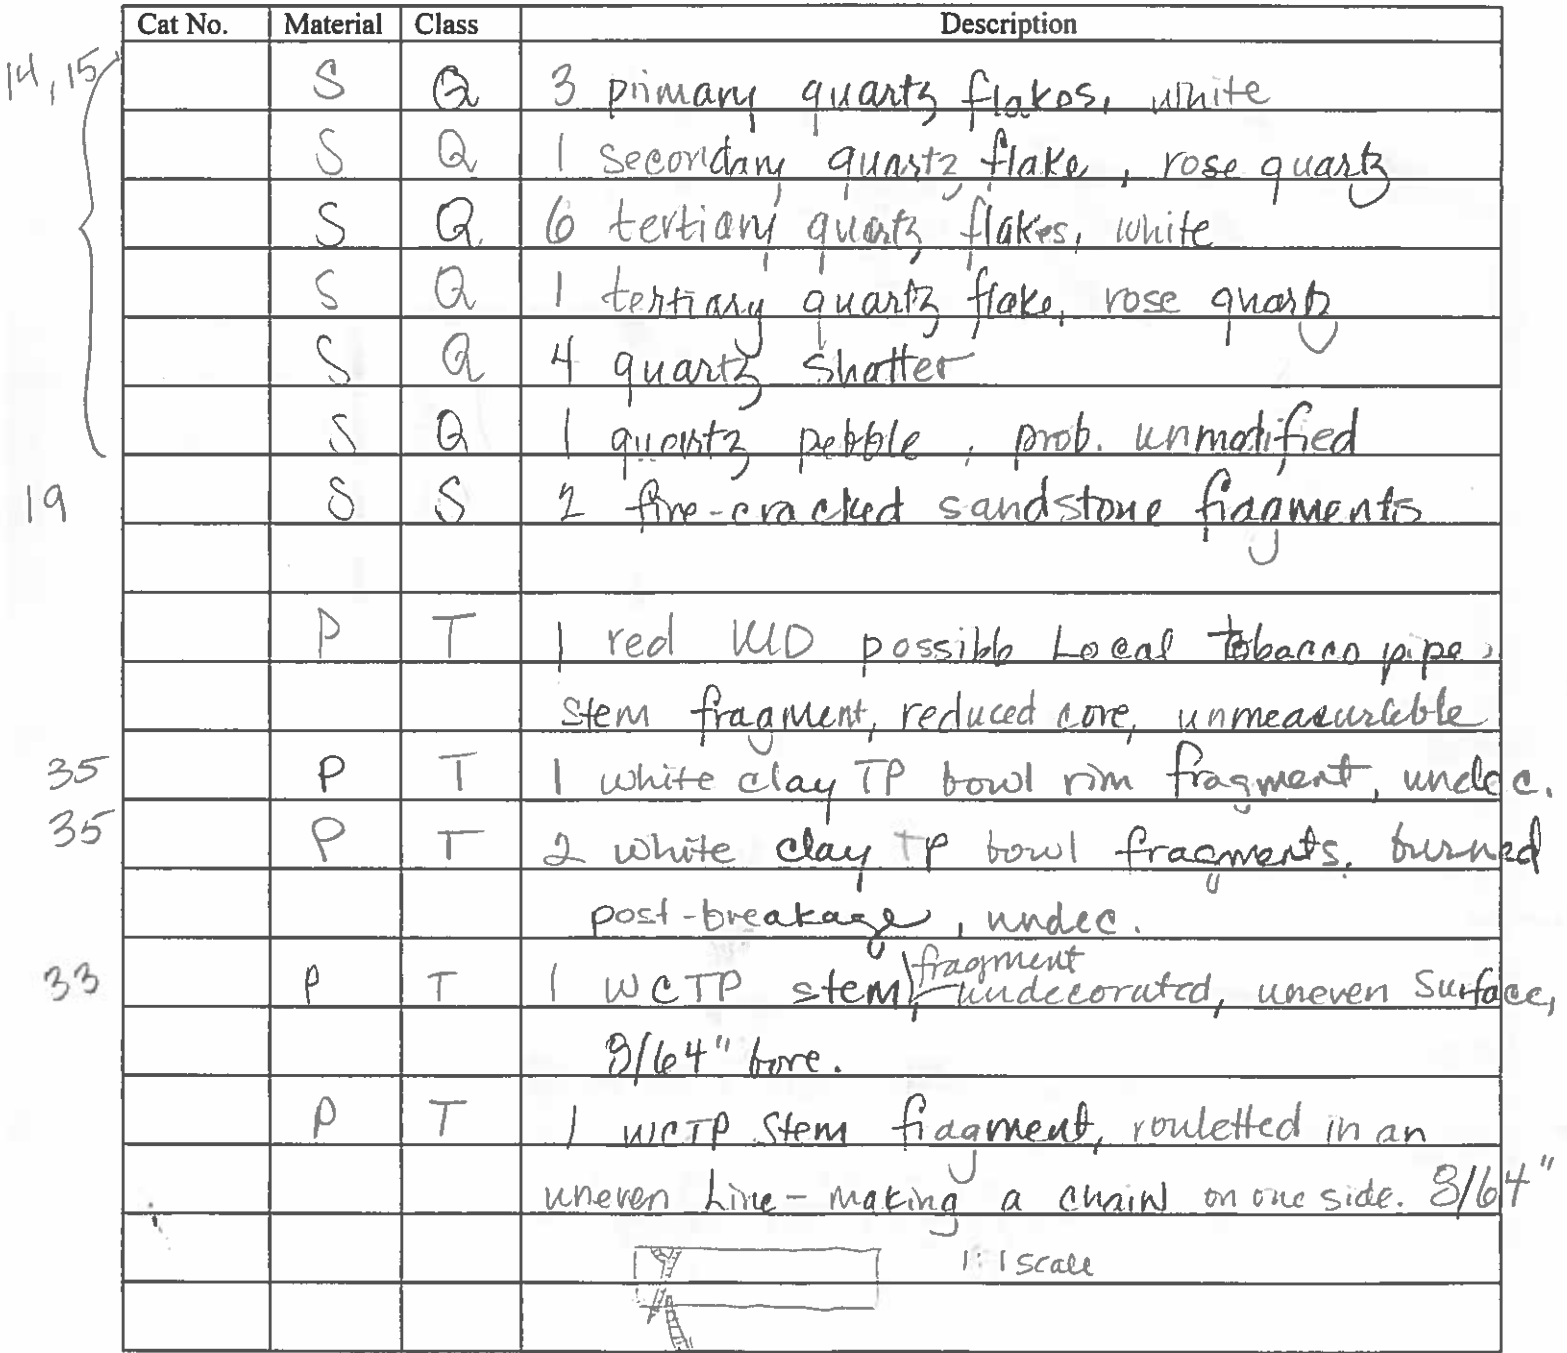 Cat No. Material Class Description
14, 15 S Q 3 primary quartz flakes, white
S Q 1 secondary quartz flake, rose quartz
S Q 6 tertiary quartz flakes, white
S Q 1 tertiary quartz flake, rose quartz
S Q 4 quartz shatter
S Q 1 quartz pebble, prob. unmodified
19 S S 2 fire-cracked sandstone fragments
P T 1 red possible Local tobacco pipe,
stem fragment, reduced core, unmeasurable
35 P T 1 white clay TP bowl rim fragment, undec.
35 P T 2 white clay TP bowl fragments, burned
post-breakage, undec.
33 P T 1 WCTP stem fragment, undecorated, uneven surface,
8/64" bore.
P T 1 WCTP stem fragment, rouletted in an
uneven line - making a chain on one side. 8/64"
1:1 scale